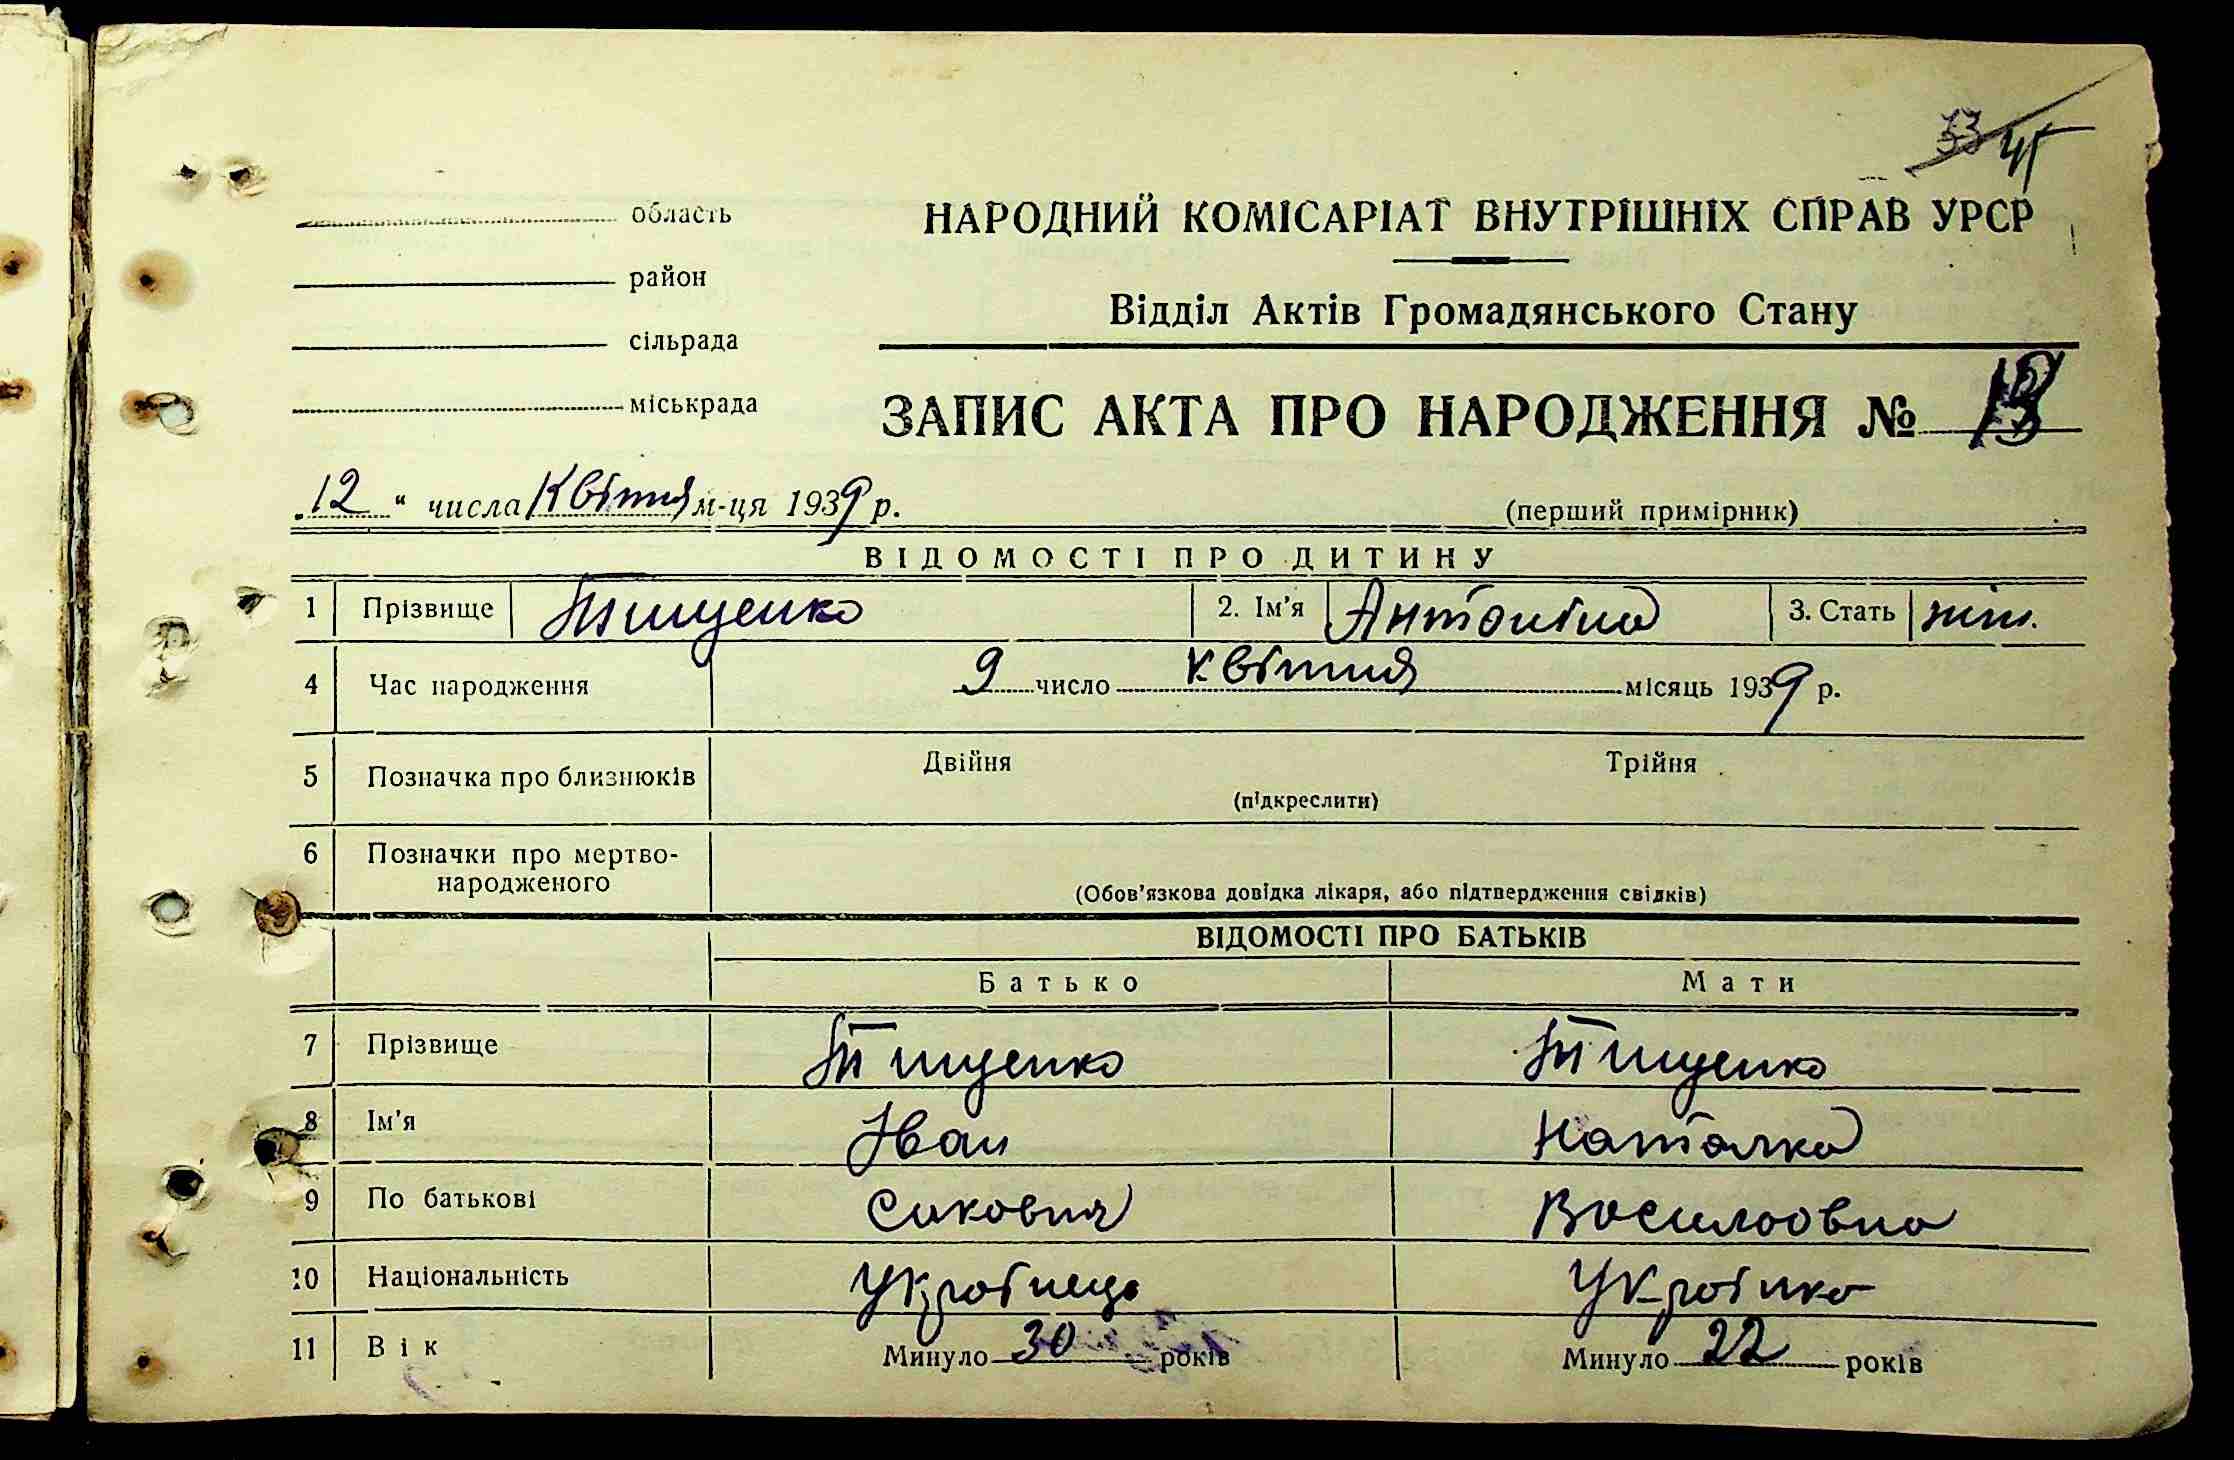 45
область
НАРОДНИЙ КОМІСАРІАТ ВНУТРІШНІХ СПРАВ УРСР
район
Відділ Актів Громадянського Стану
сільрада
міськрада
ЗАПИС АКТА ПРО НАРОДЖЕННЯ №
12 " числа Квітня м-ця 1939 р.
(перший примірник)
ВІДОМОСТІ ПРО ДИТИНУ
1 Прізвище Тищенко 2. Ім'я Антоніна 3. Стать жін.
4 Час народження 9 число квітня місяць 1939 р.
5 Позначка про близнюків Двійня Трійня
(підкреслити)
6 Позначки про мертво-
народженого
(Обов'язкова довідка лікаря, або підтвердження свідків)
ВІДОМОСТІ ПРО БАТЬКІВ
Батько Мати
7 Прізвище Тищенко Тищенко
8 Ім'я Іван Наталка
9 По батькові Сакович Василовна
10 Національність Українець Українка
11 Вік Минуло 30 років Минуло 22 років